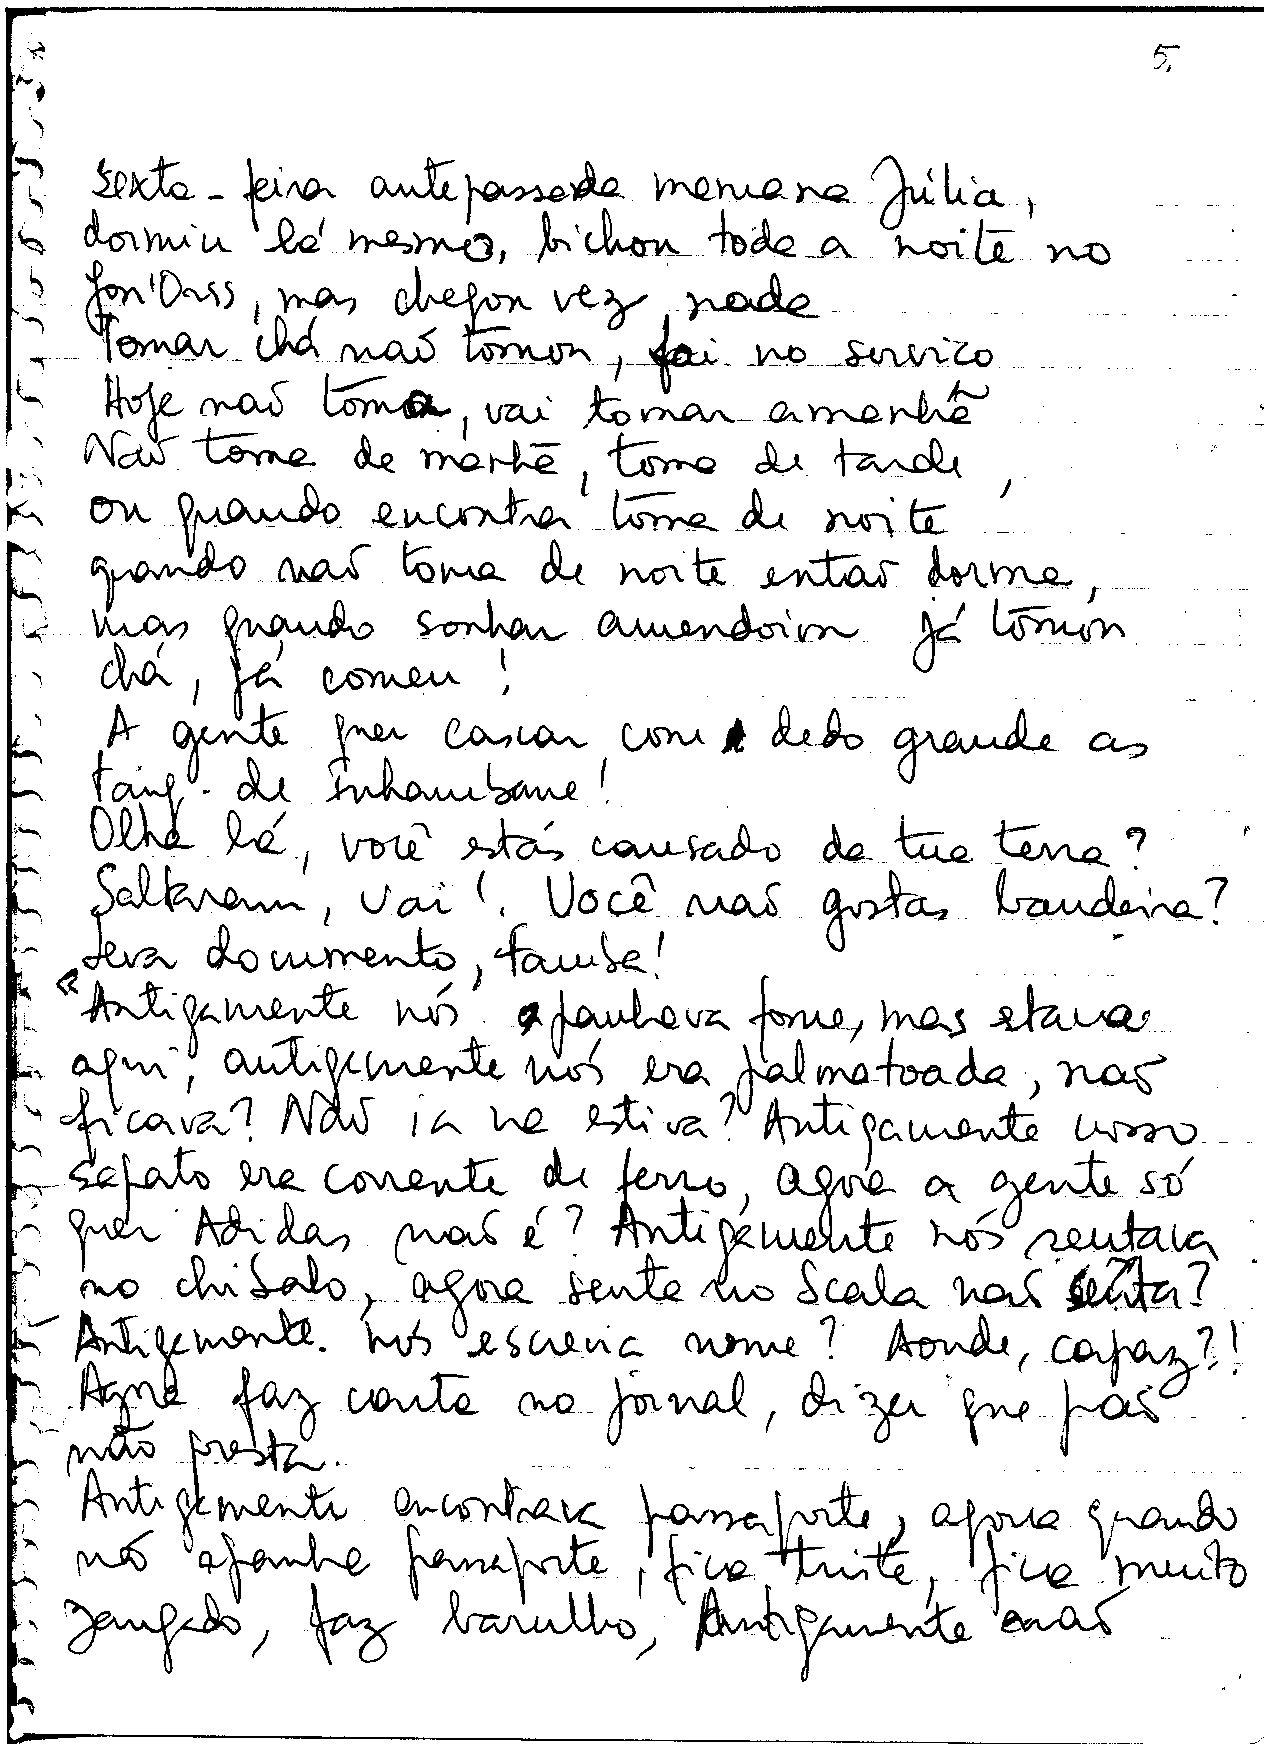 5.
sexta-feira antepassada mamana Júlia,
dormiu lá mesmo, bichou toda a noite no
Jon'Orss, mas chegou vez, nada
Tomar chá não tomou, foi no serviço
Hoje não toma, vai tomar amanhã
Não toma de manhã, toma de tarde,
ou quando encontra toma de noite
quando não toma de noite então dorme,
mas quando sonhar amendoim já tomou
chá, já comeu!
A gente quer cascar com dedo grande as
tang. de Inhambane!
Olha lá, você estás cansado da tua terra?
Saltaram, vai! Você não gostas bandeira?
Leva documento, famba!
"Antigamente nós apanhava fome, mas estava
aqui, antigamente nós era palmatoada, não
ficava? Não ia na estiva? Antigamente nosso
sapato era corrente de ferro, agora a gente só
quer Adidas não é? Antigamente nós sentava
no chibalo, agora senta no Scala não senta?
Antigamente. nós escrevia nome? Aonde, capaz?!
Agora faz conta no jornal, dizer que país
não presta.
Antigamente encontrava passaporte, agora quando
nós apanha passaporte, fica triste, fica muito
zangado, faz barulho, Antigamente não